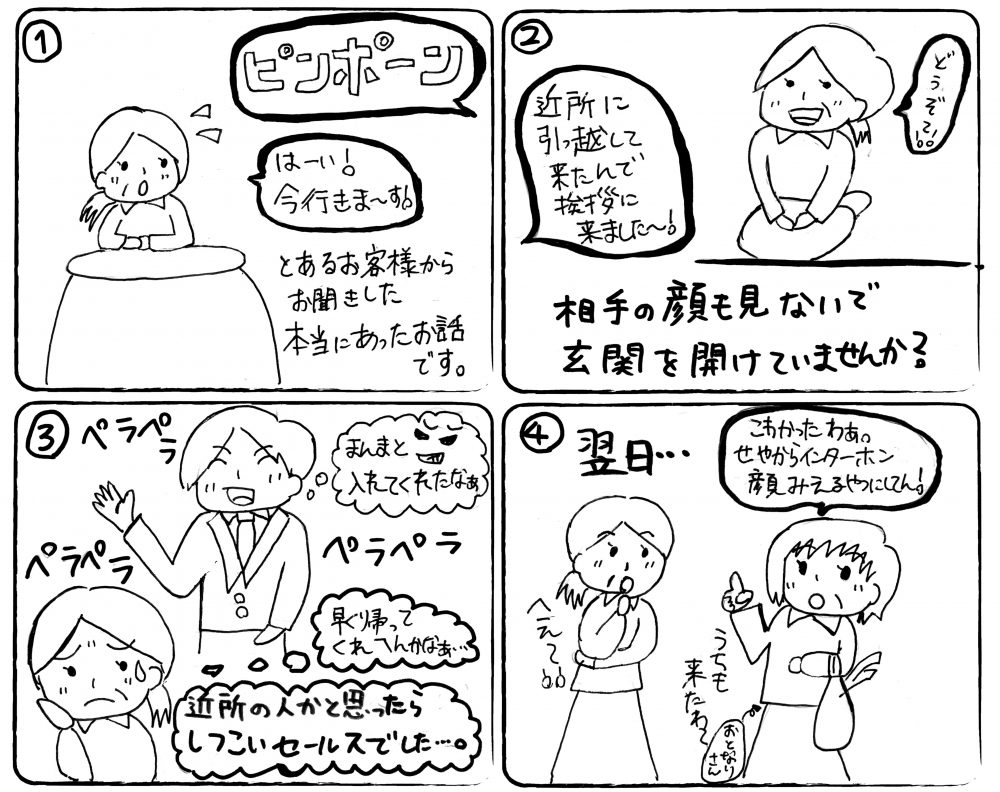 ①
ピンポーン
はーい!
今行きま〜す!
とあるお客様から
お聞きした
本当にあったお話
です。
②
どうぞ〜!!
近所に
引っ越して
来たんで
挨拶に
来ました〜!
相手の顔も見ないで
玄関を開けていませんか?
③
ペラペラ
まんまと
入れてくれたなぁ
ペラペラ
ペラペラ
早く帰って
くれへんかなぁ…
近所の人かと思ったら
しつこいセールスでした…。
④
翌日…
こわかったわぁ。
せやからインターホン
顔みえるやつにしてん!
へぇ〜!!
うちも
来たわ〜
おとなり
さん